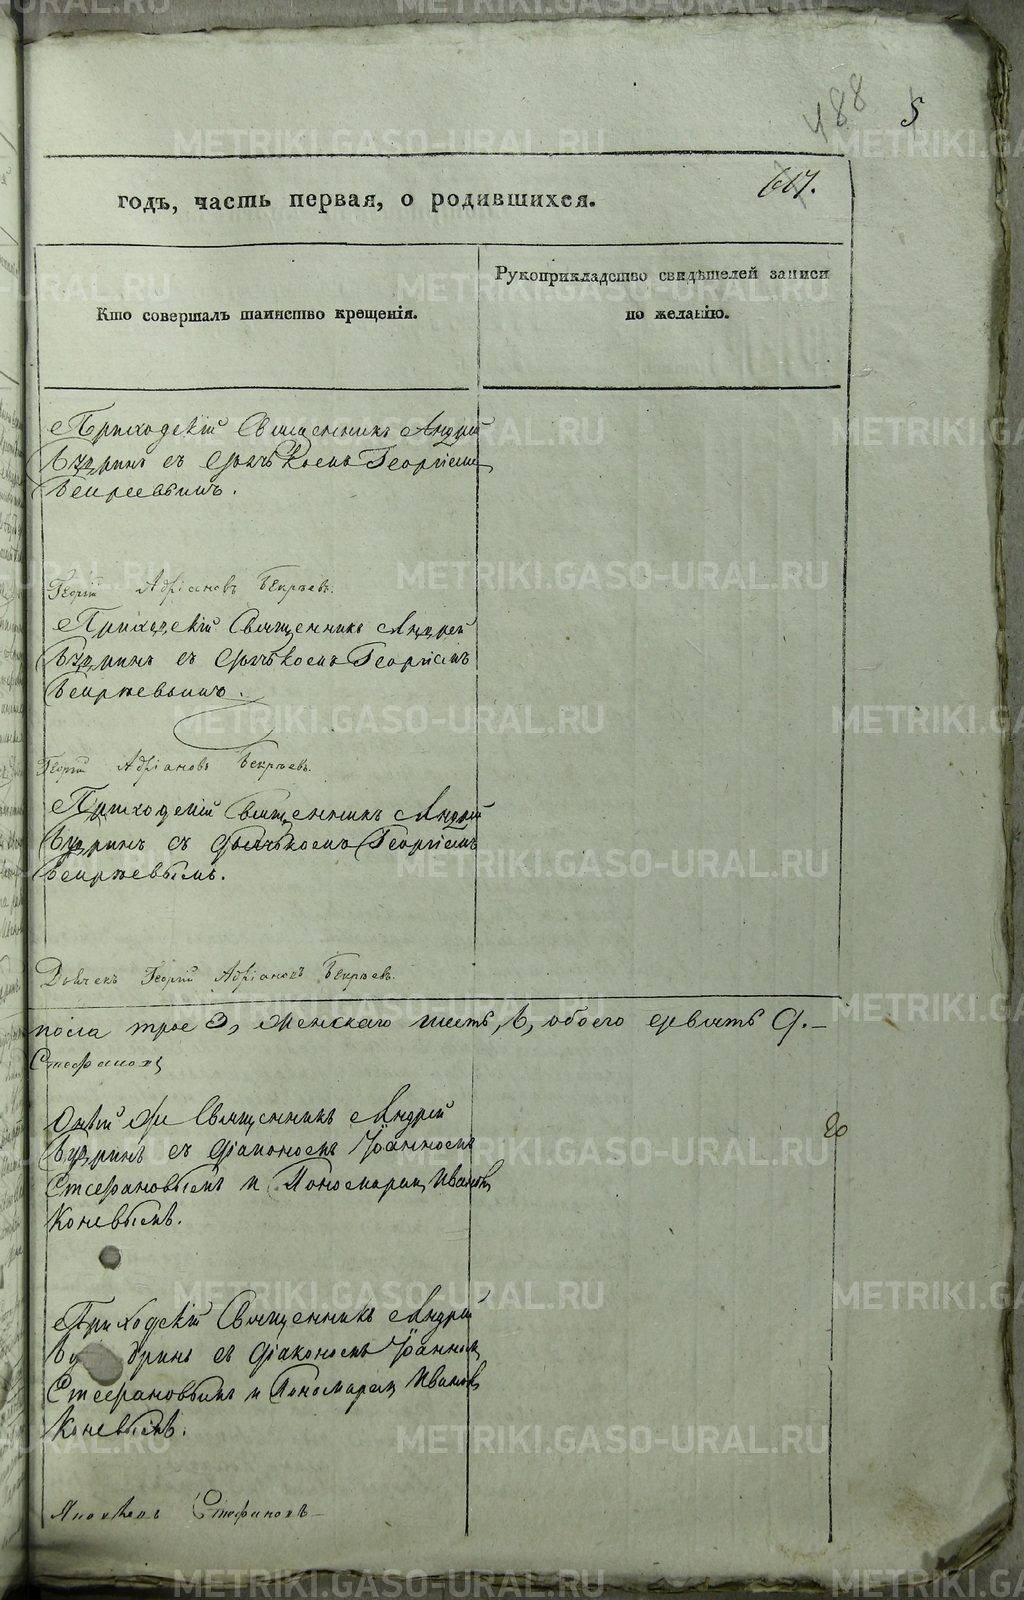 488
5
617.
годъ, часть первая, о родившихся.
Кто совершалъ таинство крещенія.
Рукоприкладство свидѣтелей записи
по желанію.
Приходскій Священникъ Андрей
съ Дьячькомъ Георгіемъ
Бекреевымъ.
Георгій Адріановъ Бекрѣевъ.
Приходскій Священникъ Андрей
съ Дьячькомъ Георгіемъ
Бекрѣевымъ.
Георгій Адріановъ Бекрѣевъ.
Приходскій Священникъ Андрей
съ Дьячькомъ Георгіемъ
Бекрѣевымъ.
Дьячекъ Георгій Адріановъ Бекрѣевъ.
пола трое 3, женскаго шесть, 6, обоего девять 9.
Священникъ Андрей
съ Діакономъ Іоанномъ
Стефановымъ и Пономарем Иваном
Коневымъ.
Приходскій Священникъ Андрей
съ Діакономъ Іоанном
Стефановымъ и Пономарем Иваном
Коневымъ.
Стефановъ
METRIKI.GASO-URAL.RU